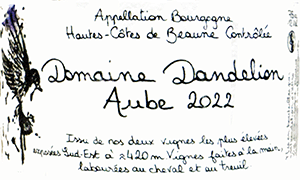 Appellation Bourgogne
Hautes-Côtes de Beaune Contrôlée
Domaine Dandelion
Aube 2022
Issu de nos deux vignes les plus élevées
exposées Sud-Est à 420m Vignes faites à la main,
labourées au cheval et au treuil